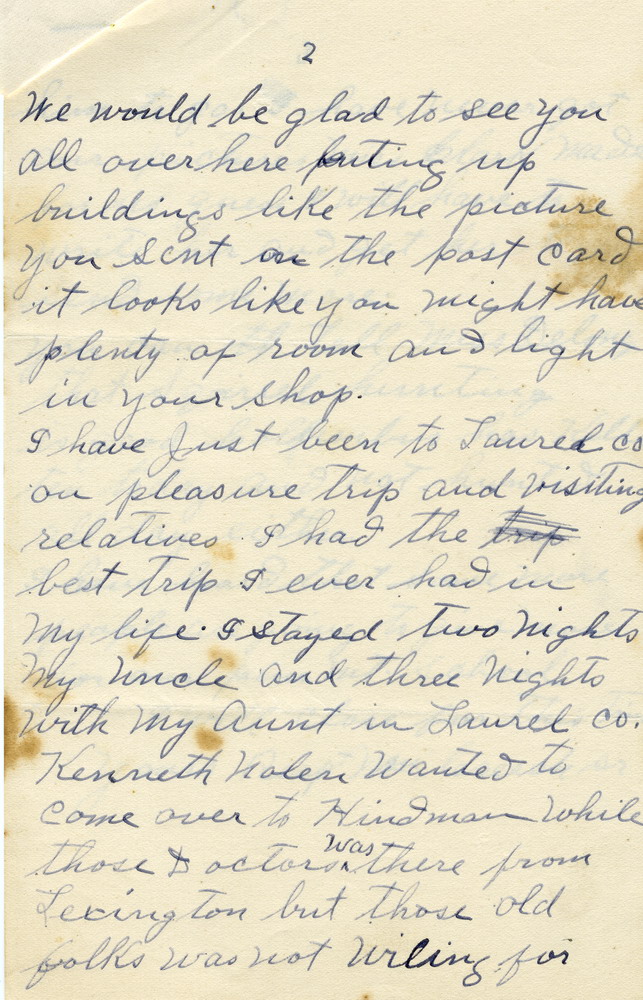 2
We would be glad to see you
all over here puting up
buildings like the picture
you sent on the post card
it looks like you might have
plenty of room and light
in your shop.
I have Just been to Laurel co
on pleasure trip and visiting
relatives. I had the trip
best trip I ever had in
My life. I stayed two Nights
My Uncle and three Nights
With My Aunt in Laurel co.
Kenneth Nolen Wanted to
come over to Hindman While
those Doctors was there from
Lexington but those old
folks was not Wiling for